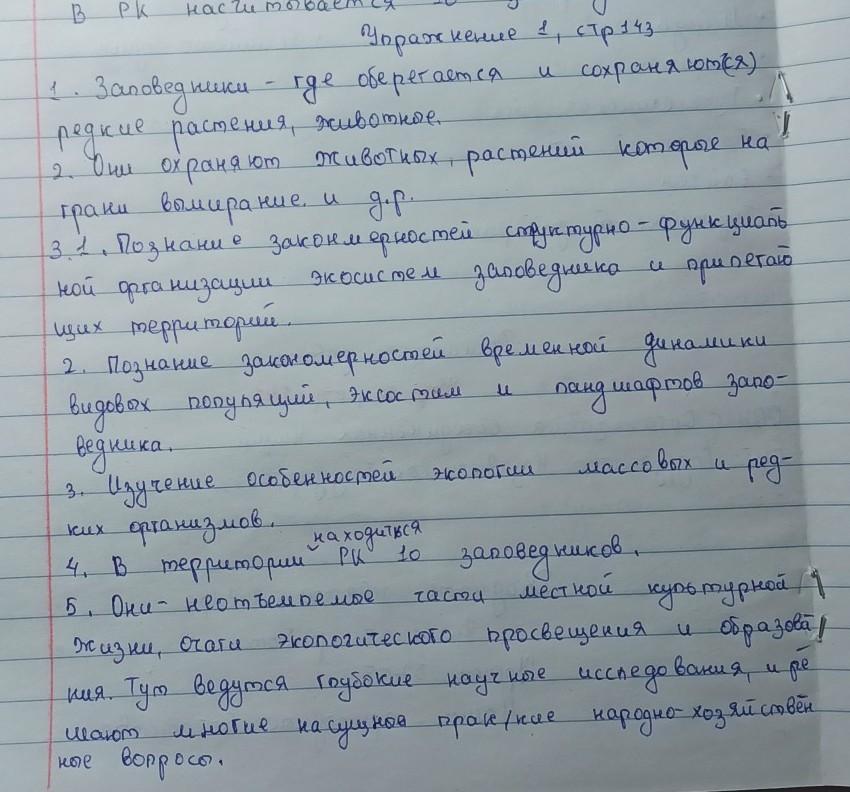 В РК насчитывается
Упражнение 1, стр 143
1. Заповедники - где оберегается и сохраняют(ся)
редкие растения, животное.
2. Они охраняют животных, растений которые на
грани вымирание. и д.р.
3.1. Познание закономерностей структурно-функциаль
ной организации экосистем заповедника и прилегаю
щих территорий.
2. Познание закономерностей временной динамики
видовых популяций, эксостим и ландшафтов запо-
ведника.
3. Изучение особенностей экологии массовых и ред-
ких организмов.
находиться
4. В территории РК 10 заповедников.
5. Они - неотъемлемое части местной культурной
жизни, очаги экологического просвещения и образова
ния. Тут ведутся глубокие научные исследования, и ре
шают многие насущное прак/кие народно-хозяйствен
ные вопросы.